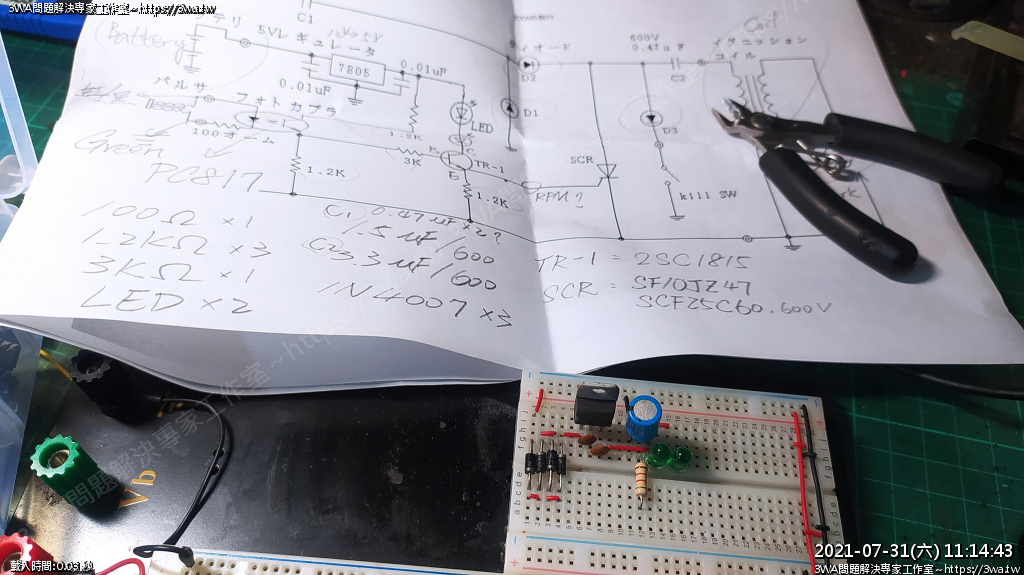 3WA問題解決專家工作室~https://3wa.tw
C1
Battery
5Vレギュレータ
7805
0.01uF
0.01uF
パルサ
フォトカプラ
100オーム
Green
PC817
1.2K
3K
LED
TR-1
1.2K
D2
D1
SCR
RPM?
600V
0.47uF
C2
D3
kill SW
イグニッション
コイル
Coil
100Ω ×1
1.2KΩ ×3
3KΩ ×1
LED ×2
C1 0.47uF ×2?
1.5uF/600
C2 3.3uF/600
1N4007 ×3
TR-1 = 2SC1815
SCR = SF10JZ47
SCF25C60.600V
Vb
2021-07-31(六) 11:14:43
3WA問題解決專家工作室~https://3wa.tw